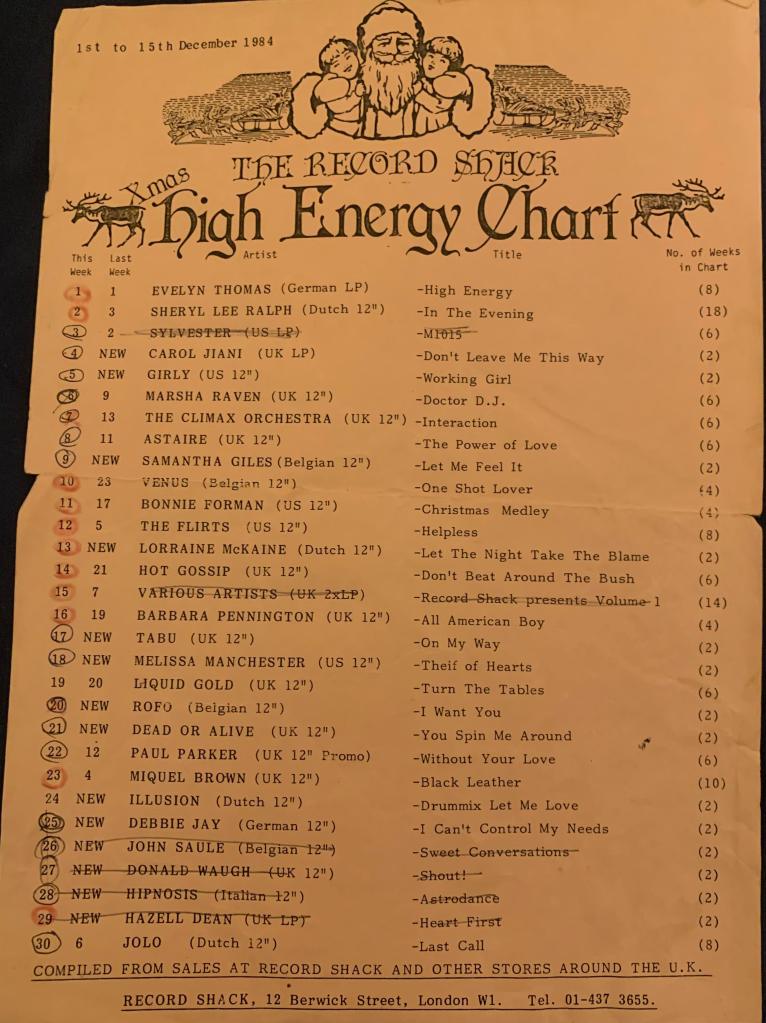 1st to 15th December 1984
THE RECORD SHACK
Xmas
High Energy Chart
This Week Last Week Artist Title No. of Weeks in Chart
1 1 EVELYN THOMAS (German LP) -High Energy (8)
2 3 SHERYL LEE RALPH (Dutch 12") -In The Evening (18)
3 2 SYLVESTER (US LP) -M1015 (6)
4 NEW CAROL JIANI (UK LP) -Don't Leave Me This Way (2)
5 NEW GIRLY (US 12") -Working Girl (2)
6 9 MARSHA RAVEN (UK 12") -Doctor D.J. (6)
7 13 THE CLIMAX ORCHESTRA (UK 12") -Interaction (6)
8 11 ASTAIRE (UK 12") -The Power of Love (6)
9 NEW SAMANTHA GILES (Belgian 12") -Let Me Feel It (2)
10 23 VENUS (Belgian 12") -One Shot Lover (4)
11 17 BONNIE FORMAN (US 12") -Christmas Medley (4)
12 5 THE FLIRTS (US 12") -Helpless (8)
13 NEW LORRAINE McKAINE (Dutch 12") -Let The Night Take The Blame (2)
14 21 HOT GOSSIP (UK 12") -Don't Beat Around The Bush (6)
15 7 VARIOUS ARTISTS (UK 2xLP) -Record Shack presents Volume 1 (14)
16 19 BARBARA PENNINGTON (UK 12") -All American Boy (4)
17 NEW TABU (UK 12") -On My Way (2)
18 NEW MELISSA MANCHESTER (US 12") -Theif of Hearts (2)
19 20 LIQUID GOLD (UK 12") -Turn The Tables (6)
20 NEW ROFO (Belgian 12") -I Want You (2)
21 NEW DEAD OR ALIVE (UK 12") -You Spin Me Around (2)
22 12 PAUL PARKER (UK 12" Promo) -Without Your Love (6)
23 4 MIQUEL BROWN (UK 12") -Black Leather (10)
24 NEW ILLUSION (Dutch 12") -Drummix Let Me Love (2)
25 NEW DEBBIE JAY (German 12") -I Can't Control My Needs (2)
26 NEW JOHN SAULE (Belgian 12") -Sweet Conversations (2)
27 NEW DONALD WAUGH (UK 12") -Shout! (2)
28 NEW HIPNOSIS (Italian 12") -Astrodance (2)
29 NEW HAZELL DEAN (UK LP) -Heart First (2)
30 6 JOLO (Dutch 12") -Last Call (8)
COMPILED FROM SALES AT RECORD SHACK AND OTHER STORES AROUND THE U.K.
RECORD SHACK, 12 Berwick Street, London W1. Tel. 01-437 3655.